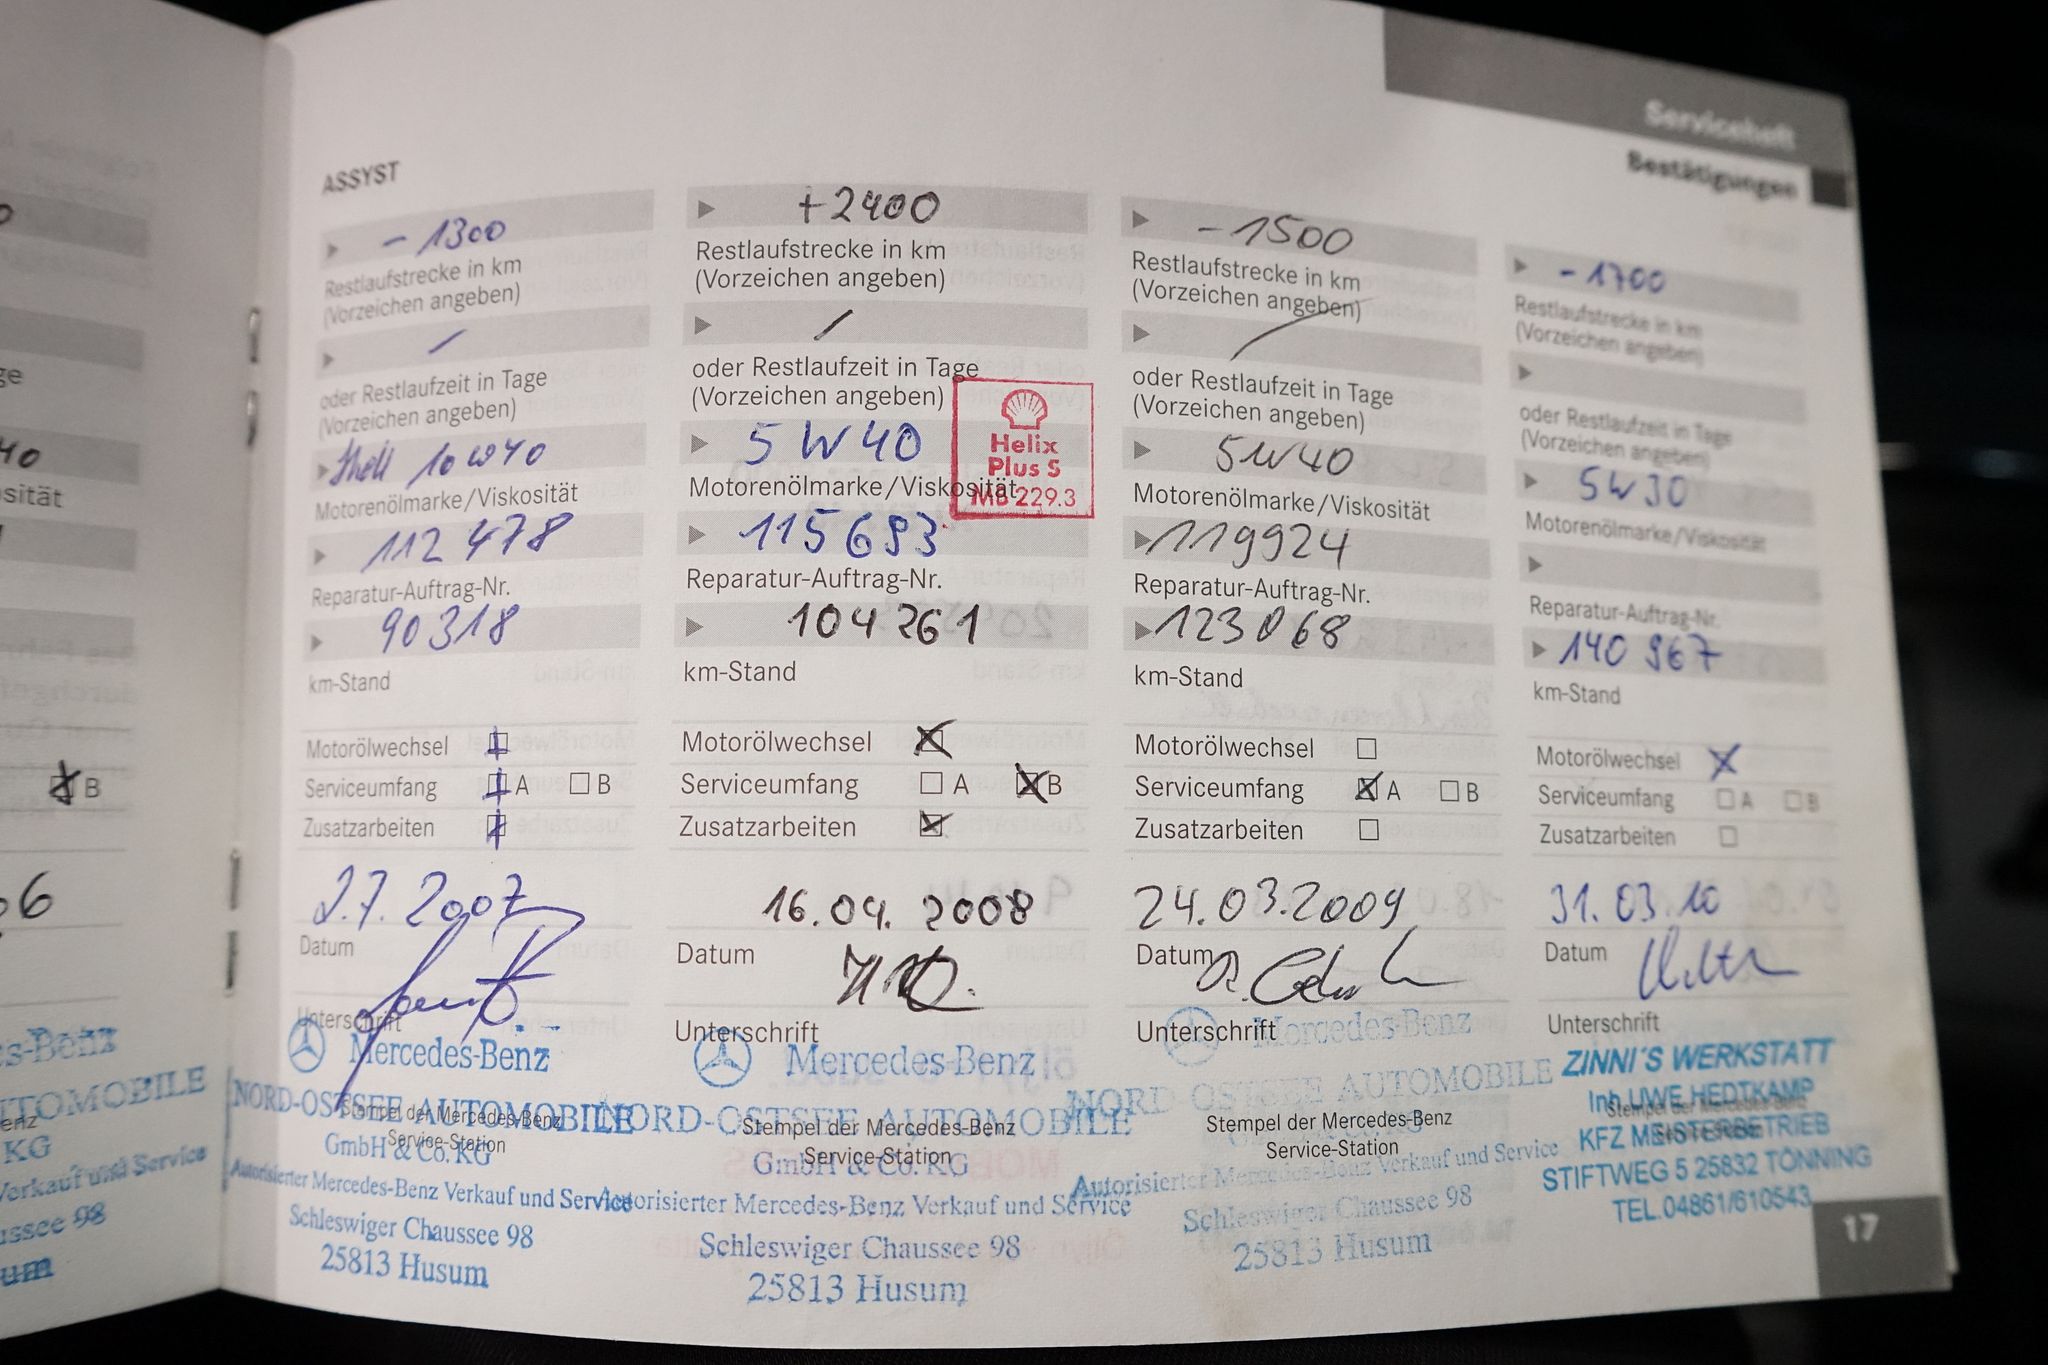 Serviceheft
Bestätigungen
ASSYST
- 1300
Restlaufstrecke in km
(Vorzeichen angeben)
/
oder Restlaufzeit in Tage
(Vorzeichen angeben)
Shell 10W40
Motorenölmarke/Viskosität
112 478
Reparatur-Auftrag-Nr.
90318
km-Stand
Motorölwechsel
Serviceumfang A B
Zusatzarbeiten
2.7.2007
Datum
Unterschrift
Mercedes-Benz
NORD-OSTSEE AUTOMOBILE
Stempel der Mercedes-Benz
Service-Station
GmbH & Co. KG
Autorisierter Mercedes-Benz Verkauf und Service
Schleswiger Chaussee 98
25813 Husum
+2400
Restlaufstrecke in km
(Vorzeichen angeben)
/
oder Restlaufzeit in Tage
(Vorzeichen angeben)
5W40
Helix
Plus S
MB 229.3
Motorenölmarke/Viskosität
115693
Reparatur-Auftrag-Nr.
104261
km-Stand
Motorölwechsel
Serviceumfang A B
Zusatzarbeiten
16.04.2008
Datum
Unterschrift
Mercedes-Benz
NORD-OSTSEE AUTOMOBILE
Stempel der Mercedes-Benz
Service-Station
GmbH & Co. KG
Autorisierter Mercedes-Benz Verkauf und Service
Schleswiger Chaussee 98
25813 Husum
- 1500
Restlaufstrecke in km
(Vorzeichen angeben)
/
oder Restlaufzeit in Tage
(Vorzeichen angeben)
5W40
Motorenölmarke/Viskosität
119924
Reparatur-Auftrag-Nr.
123068
km-Stand
Motorölwechsel
Serviceumfang A B
Zusatzarbeiten
24.03.2009
Datum
Unterschrift
Mercedes-Benz
NORD-OSTSEE AUTOMOBILE
Stempel der Mercedes-Benz
Service-Station
Autorisierter Mercedes-Benz Verkauf und Service
Schleswiger Chaussee 98
25813 Husum
- 1700
Restlaufstrecke in km
(Vorzeichen angeben)
oder Restlaufzeit in Tage
(Vorzeichen angeben)
5W30
Motorenölmarke/Viskosität
Reparatur-Auftrag-Nr.
140 967
km-Stand
Motorölwechsel
Serviceumfang A B
Zusatzarbeiten
31.03.10
Datum
Unterschrift
ZINNI'S WERKSTATT
Inh. UWE HEDTKAMP
KFZ MEISTERBETRIEB
STIFTWEG 5 25832 TÖNNING
TEL.04861/610543
17